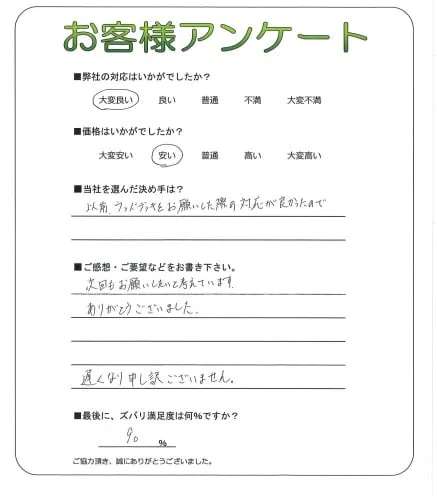 お客様アンケート
■弊社の対応はいかがでしたか?
大変良い 良い 普通 不満 大変不満
■価格はいかがでしたか?
大変安い 安い 普通 高い 大変高い
■当社を選んだ決め手は?
以前、ウッドデッキをお願いした際の対応が良かったので
■ご感想・ご要望などをお書き下さい。
次回もお願いしたいと考えています。
ありがとうございました。
遅くなり申し訳ございません。
■最後に、ズバリ満足度は何%ですか?
90 %
ご協力頂き、誠にありがとうございました。